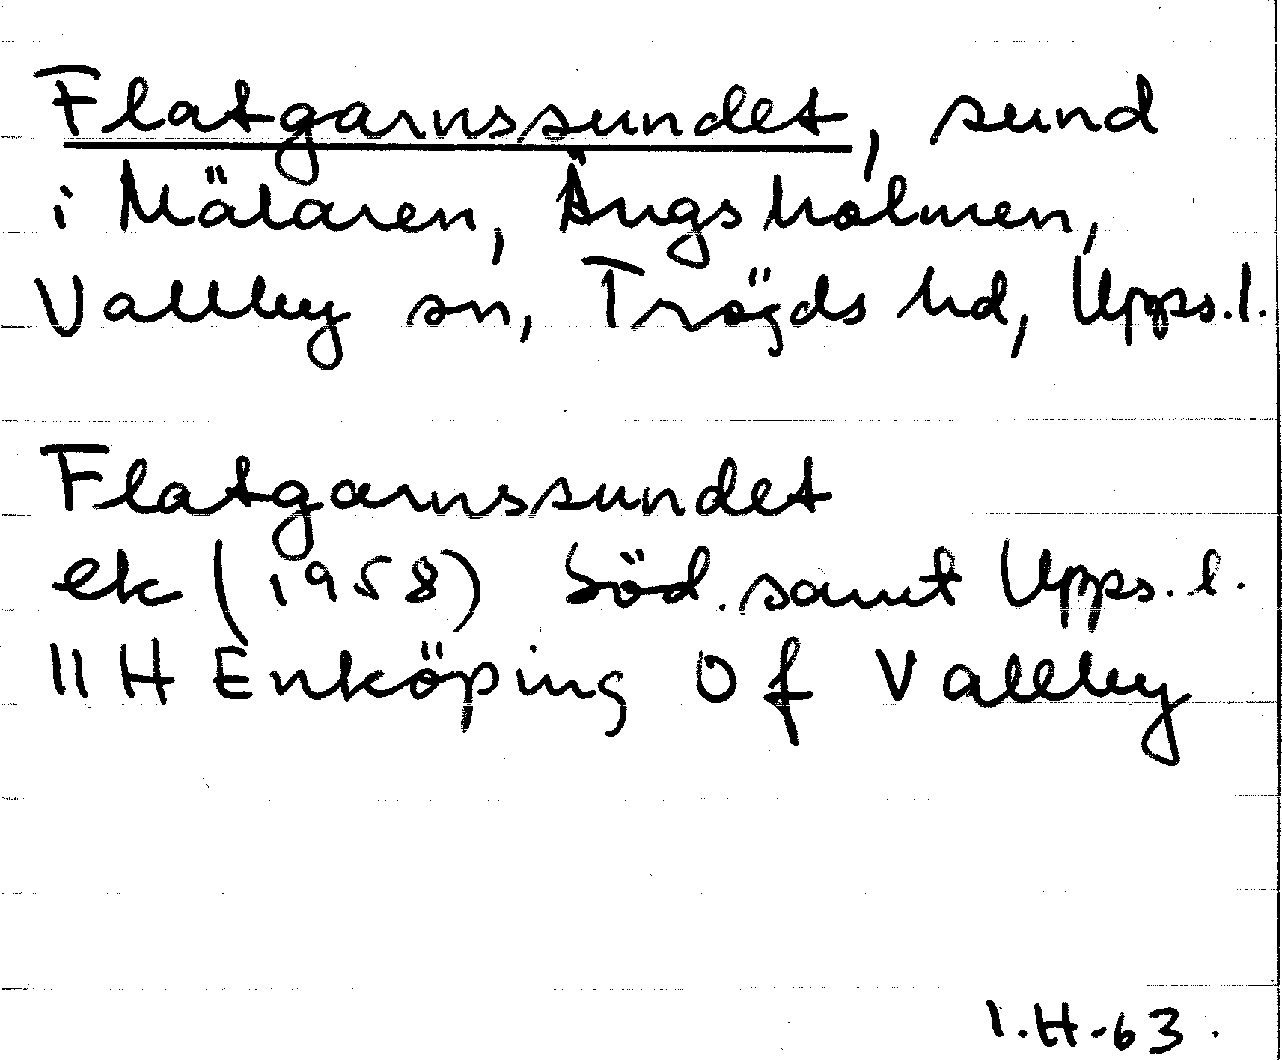 Flatgarnssundet, sund
i Mälaren, Ängsholmen,
Vallby sn, Trögds hd, Upps.l.
Flatgarnssundet
ek (1958) Söd. samt Upps. l.
11 H Enköping 0 f Vallby
1.H-63.